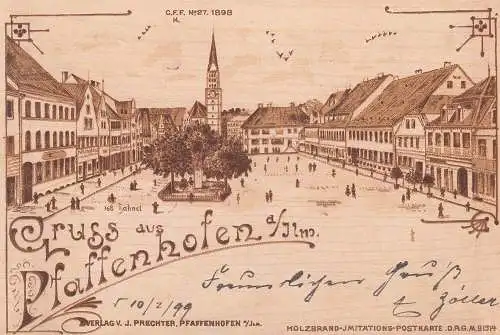 C.F.F. No 27. 1898
Gruss aus
Pfaffenhofen a/Ilm.
Freundlichen Gruß
10/2/99
Zöller
VERLAG V. J. PRECHTER, PFAFFENHOFEN a/Ilm.
HOLZBRAND-JMITATIONS-POSTKARTE .D.R.G.M.